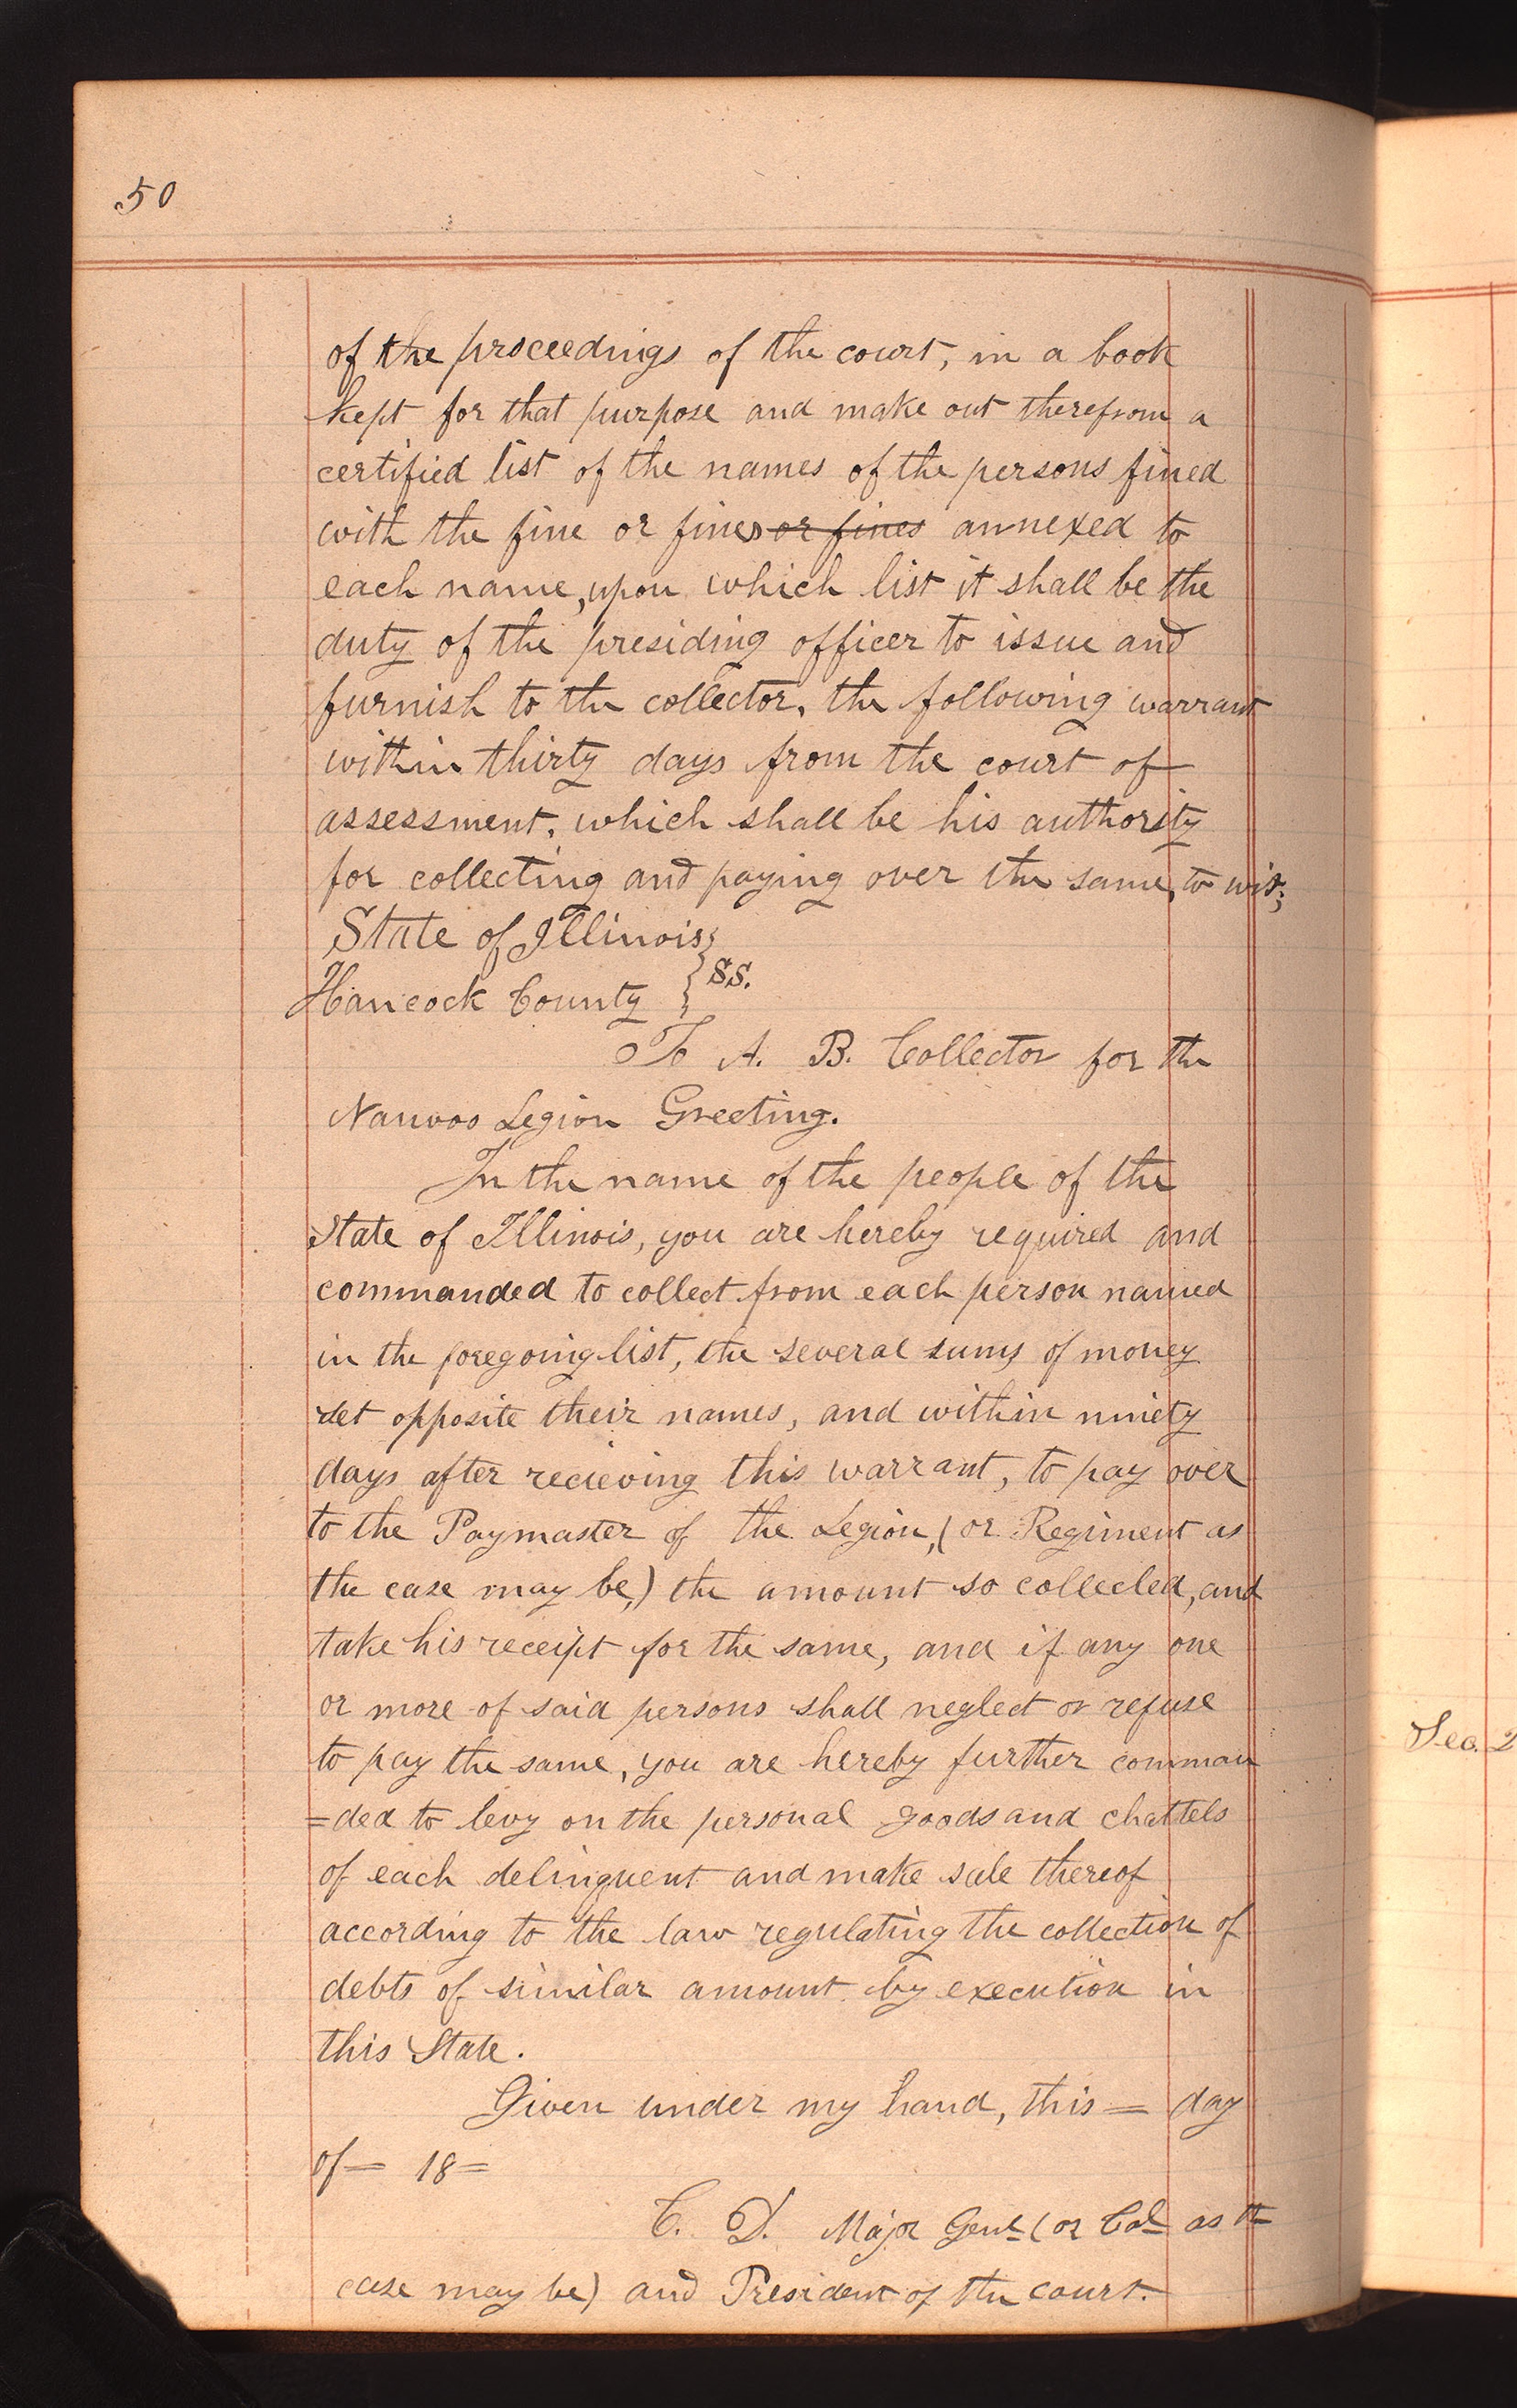 50
of the proceedings of the court, in a book
kept for that purpose and make out therefrom a
certified list of the names of the persons fined
with the fine or fines or fines annexed to
each name, upon which list it shall be the
duty of the presiding officer to issue and
furnish to the collector, the following warrant
within thirty days from the court of
assessment, which shall be his authority
for collecting and paying over the same, to wit;
State of Illinois }
Hancock County } SS.
To A. B. Collector for the
Nauvoo Legion Greeting.
In the name of the people of the
State of Illinois, you are hereby required and
commanded to collect from each person named
in the foregoing list, the several sums of money
set opposite their names, and within ninety
days after recieving this warrant, to pay over
to the Paymaster of the Legion, (or Regiment as
the case may be,) the amount so collected, and
take his receipt for the same, and if any one
or more of said persons shall neglect or refuse
to pay the same, you are hereby further comman
=ded to levy on the personal goods and chattels
of each delinquent and make sale thereof
according to the law regulating the collection of
debts of similar amount by execution in
this State.
Given under my hand, this = day
of = 18 =
C. D. Major Genl (or Col as the
case may be) and President of the court.
Sec. 2